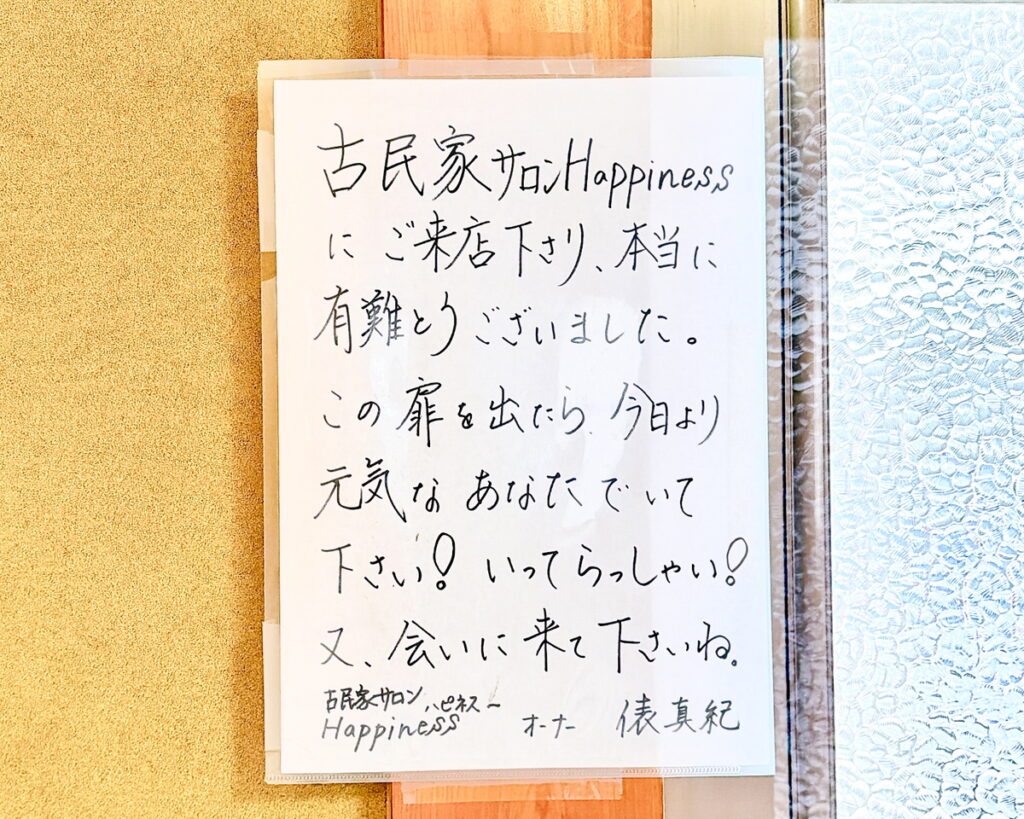 古民家サロンHappiness
にご来店下さり、本当に
有難とうございました。
この扉を出たら、今日より
元気なあなたでいて
下さい!いってらっしゃい!
又、会いに来て下さいね。
古民家サロンハピネス〜
Happiness オーナー 俵真紀